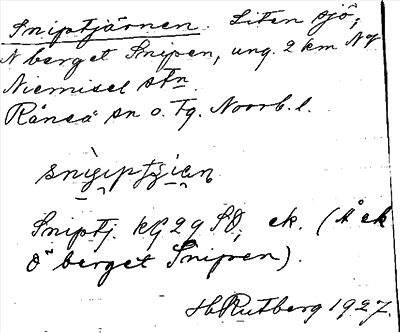 Sniptjärnen. Liten sjö,
N berget Snipen, ung. 2 km NV
Niemisel stn.
Råneå sn o. tg. Norrb. l.
Sniptj. kg 29 SO, ek. (Å ek
Ö berget Snipen).
H. Rutberg 1927.